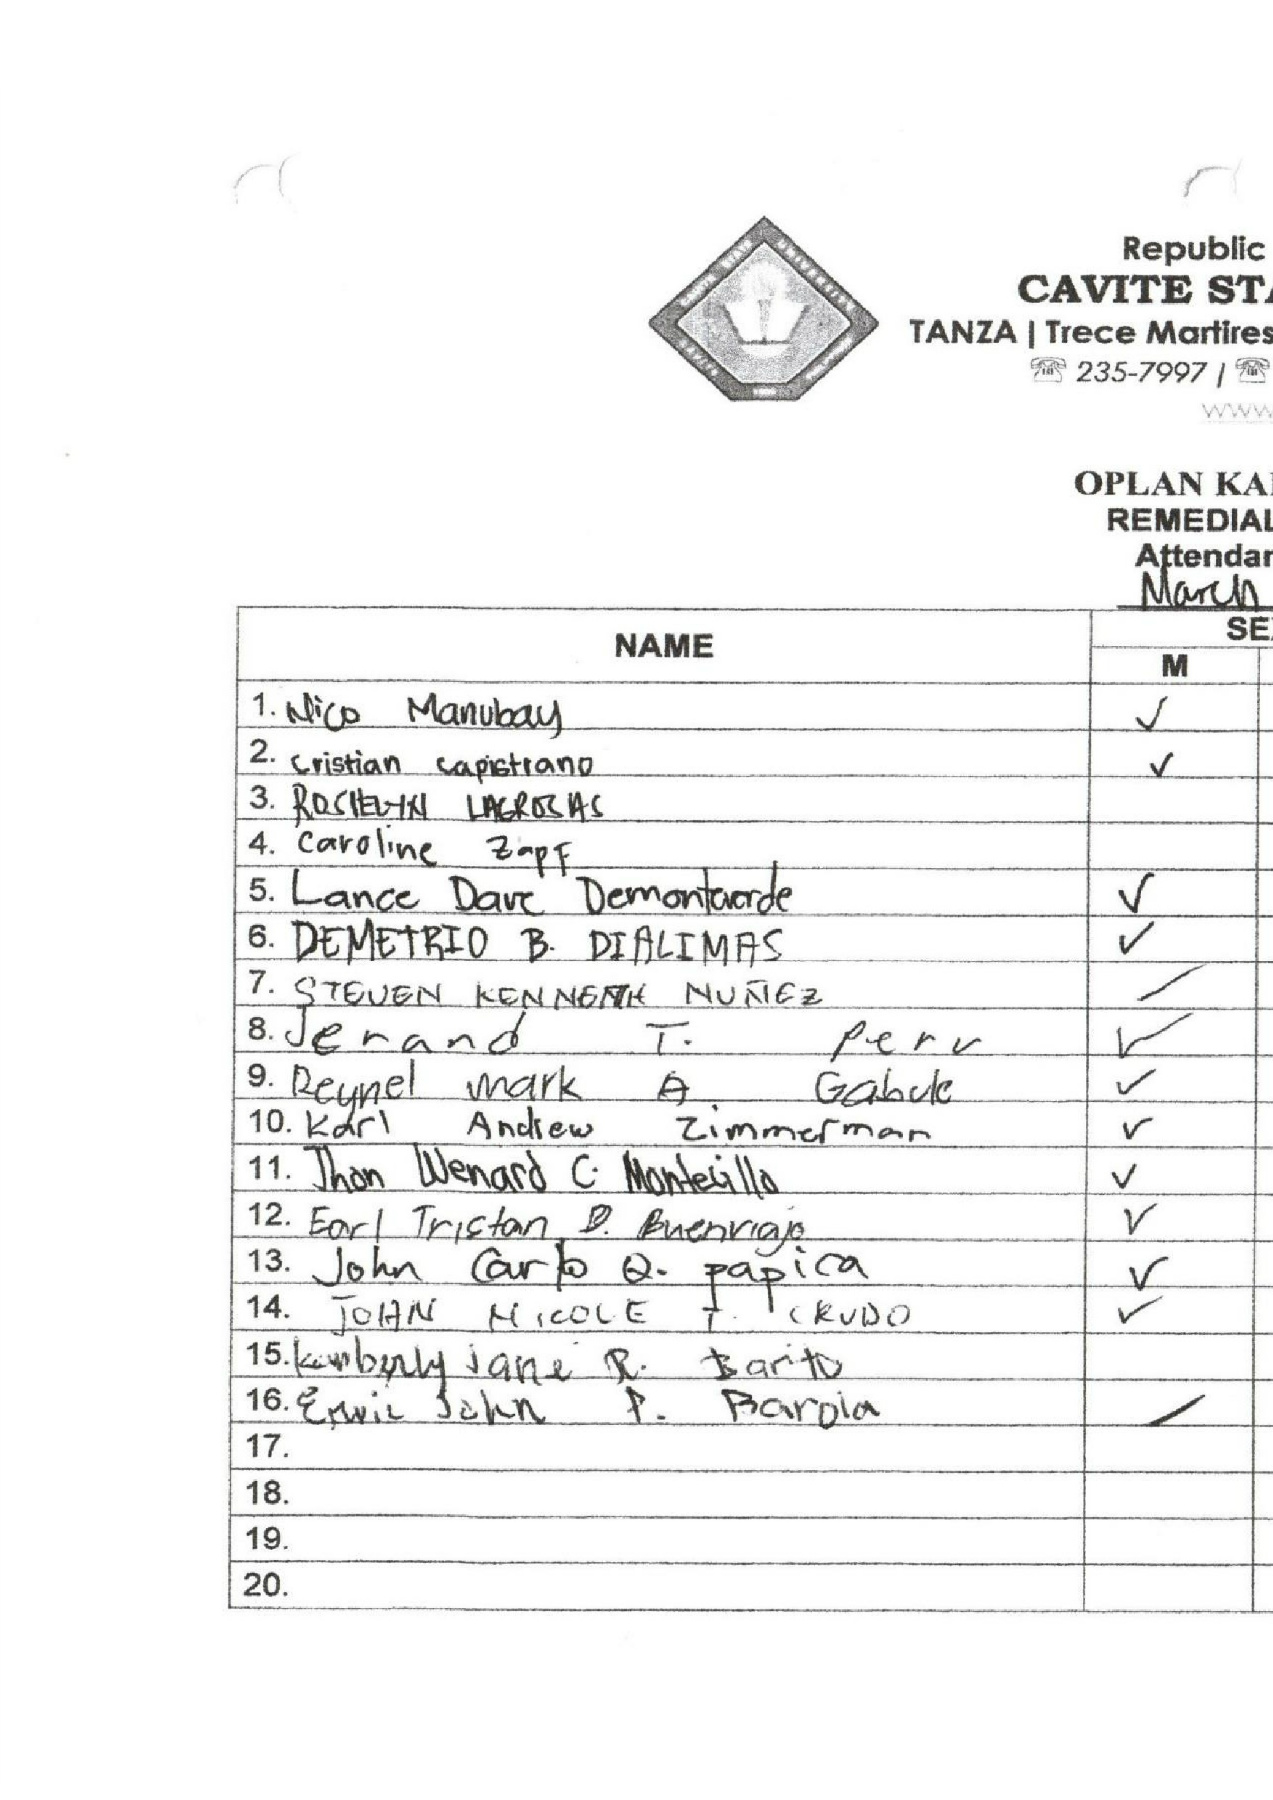 Republic
CAVITE STA
TANZA | Trece Martires
235-7997 /
www
OPLAN KA
REMEDIAL
Attendan
March
NAME
SE
M
1. Nico Manubay ✓
2. cristian capistrano ✓
3. ROSHELYN LAGROSAS
4. Caroline Zapf
5. Lance Dave Demonteverde ✓
6. DEMETRIO B. DIALIMAS ✓
7. STEVEN KENNETH NUÑEZ /
8. Jerand T. Peru ✓
9. Reynel mark A Gabule ✓
10. Karl Andrew Zimmerman ✓
11. Jhon Wenard C. Montecillo ✓
12. Earl Tristan D. Buenviaje ✓
13. John Carlo Q. papica ✓
14. JOHN NICOLE T. CRUDO ✓
15. kimberly jane R. Barito
16. John P. Barola /
17.
18.
19.
20.